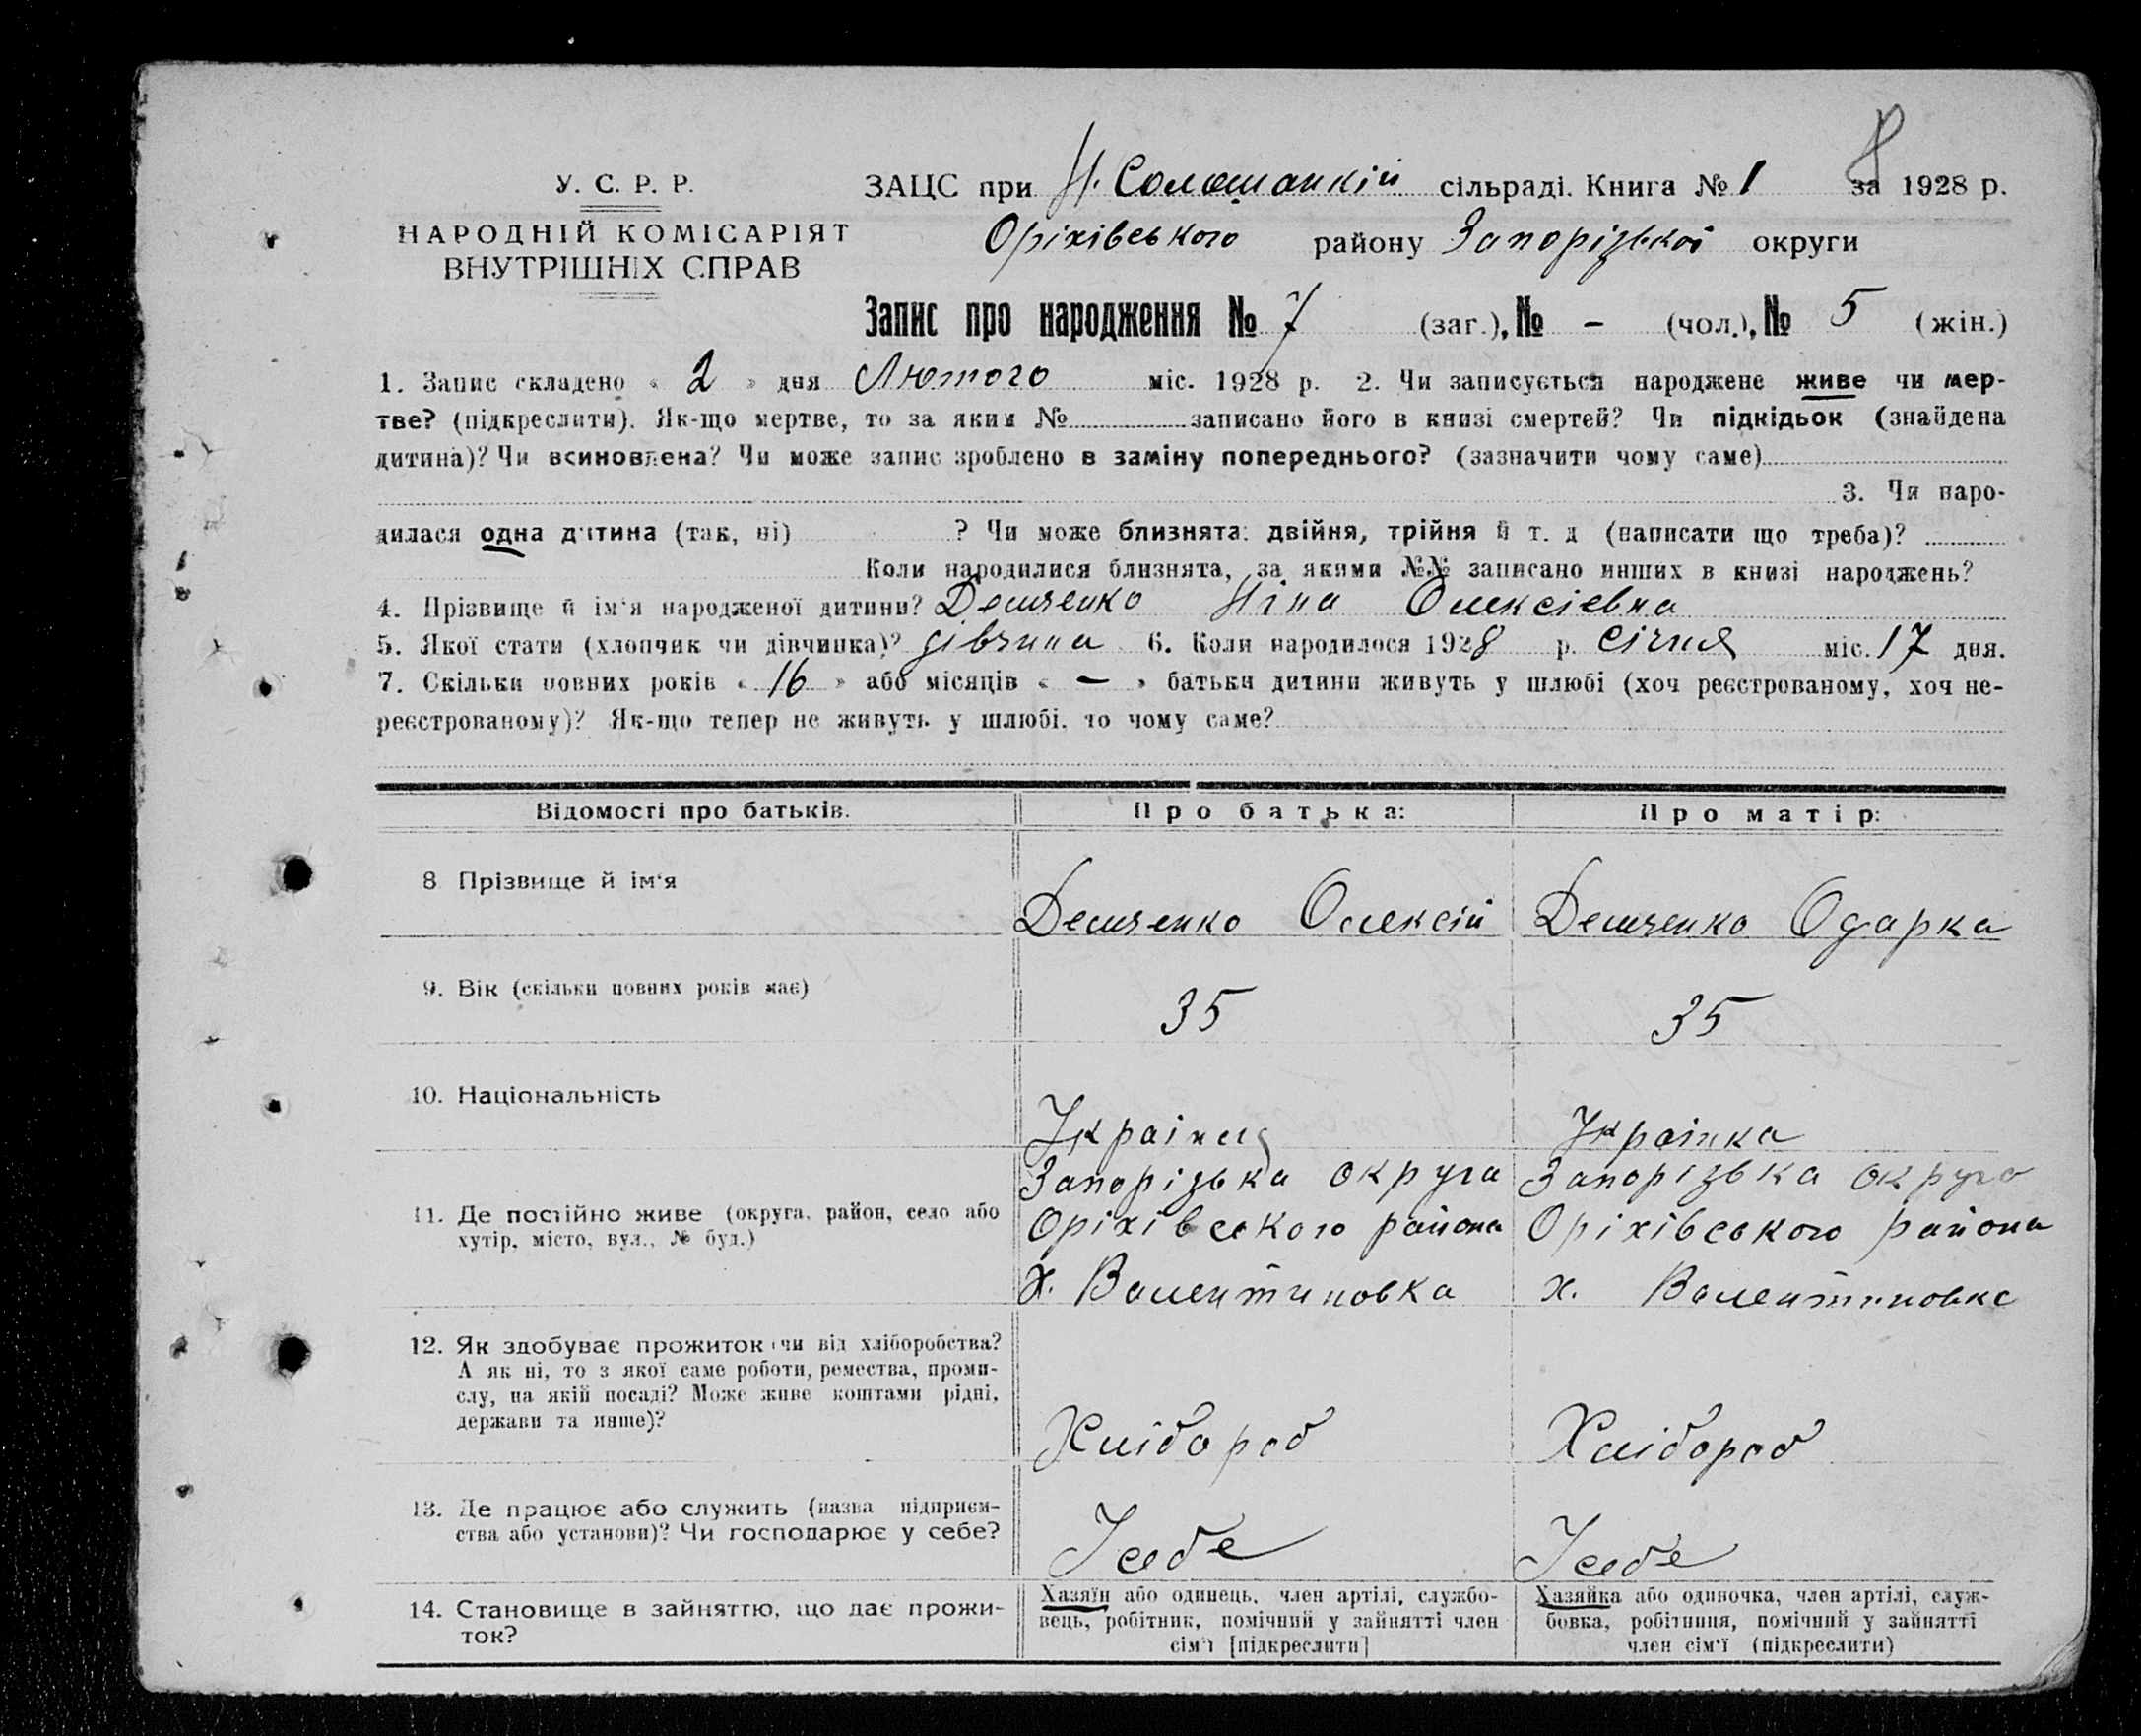 8
У. С. Р. Р.
НАРОДНІЙ КОМІСАРІЯТ
ВНУТРІШНІХ СПРАВ
ЗАЦС при Н. Солошанкій сільраді. Книга № 1 за 1928 р.
Оріхівського району Запорізької округи
Запис про народження № 7 (заг.), № - (чол.), № 5 (жін.)
1. Запис складено « 2 » дня Лютого міс. 1928 р. 2. Чи записується народжене живе чи мер-
тве? (підкреслити). Як-що мертве, то за яким № записано його в книзі смертей? Чи підкідьок (знайдена
дитина)? Чи всиновлена? Чи може запис зроблено в заміну попереднього? (зазначити чому саме)
3. Чи наро-
дилася одна дитина (так, ні) ? Чи може близнята: двійня, трійня й т. д (написати що треба)?
Коли народилися близнята, за якими №№ записано инших в книзі народжень?
4. Прізвище й ім'я народженої дитини? Демченко Ніна Олексіевна
5. Якої стати (хлопчик чи дівчинка)? дівчина 6. Коли народилося 1928 р. Січня міс. 17 дня.
7. Скільки повних років « 16 » або місяців « — » батьки дитини живуть у шлюбі (хоч реєстрованому, хоч не-
реєстрованому)? Як-що тепер не живуть у шлюбі, то чому саме?
Відомості про батьків. Про батька: Про матір:
8 Прізвище й ім'я Демченко Олексій Демченко Одарка
9. Вік (скільки повних років має) 35 35
10. Національність Українец Українка
11. Де постійно живе (округа, район, село або
хутір, місто, вул., № буд.)
Запорізька округа Запорізька округа
Оріхівського района Оріхівського района
х. Валентиновка х. Валентиновка
12. Як здобуває прожиток чи від хліборобства?
А як ні, то з якої саме роботи, ремества, проми-
слу, на якій посаді? Може живе коштами рідні,
держави та инше)?
Хлібороб Хлібороб
13. Де працює або служить (назва підприєм-
ства або установи)? Чи господарює у себе?
Усебе Усебе
14. Становище в зайняттю, що дає прожи-
ток?
Хазяїн або одинець, член артілі, службо-
вець, робітник, помічний у зайнятті член
сім'ї [підкреслити]
Хазяйка або одиночка, член артілі, служ-
бовка, робітниця, помічний у зайнятті
член сім'ї (підкреслити)